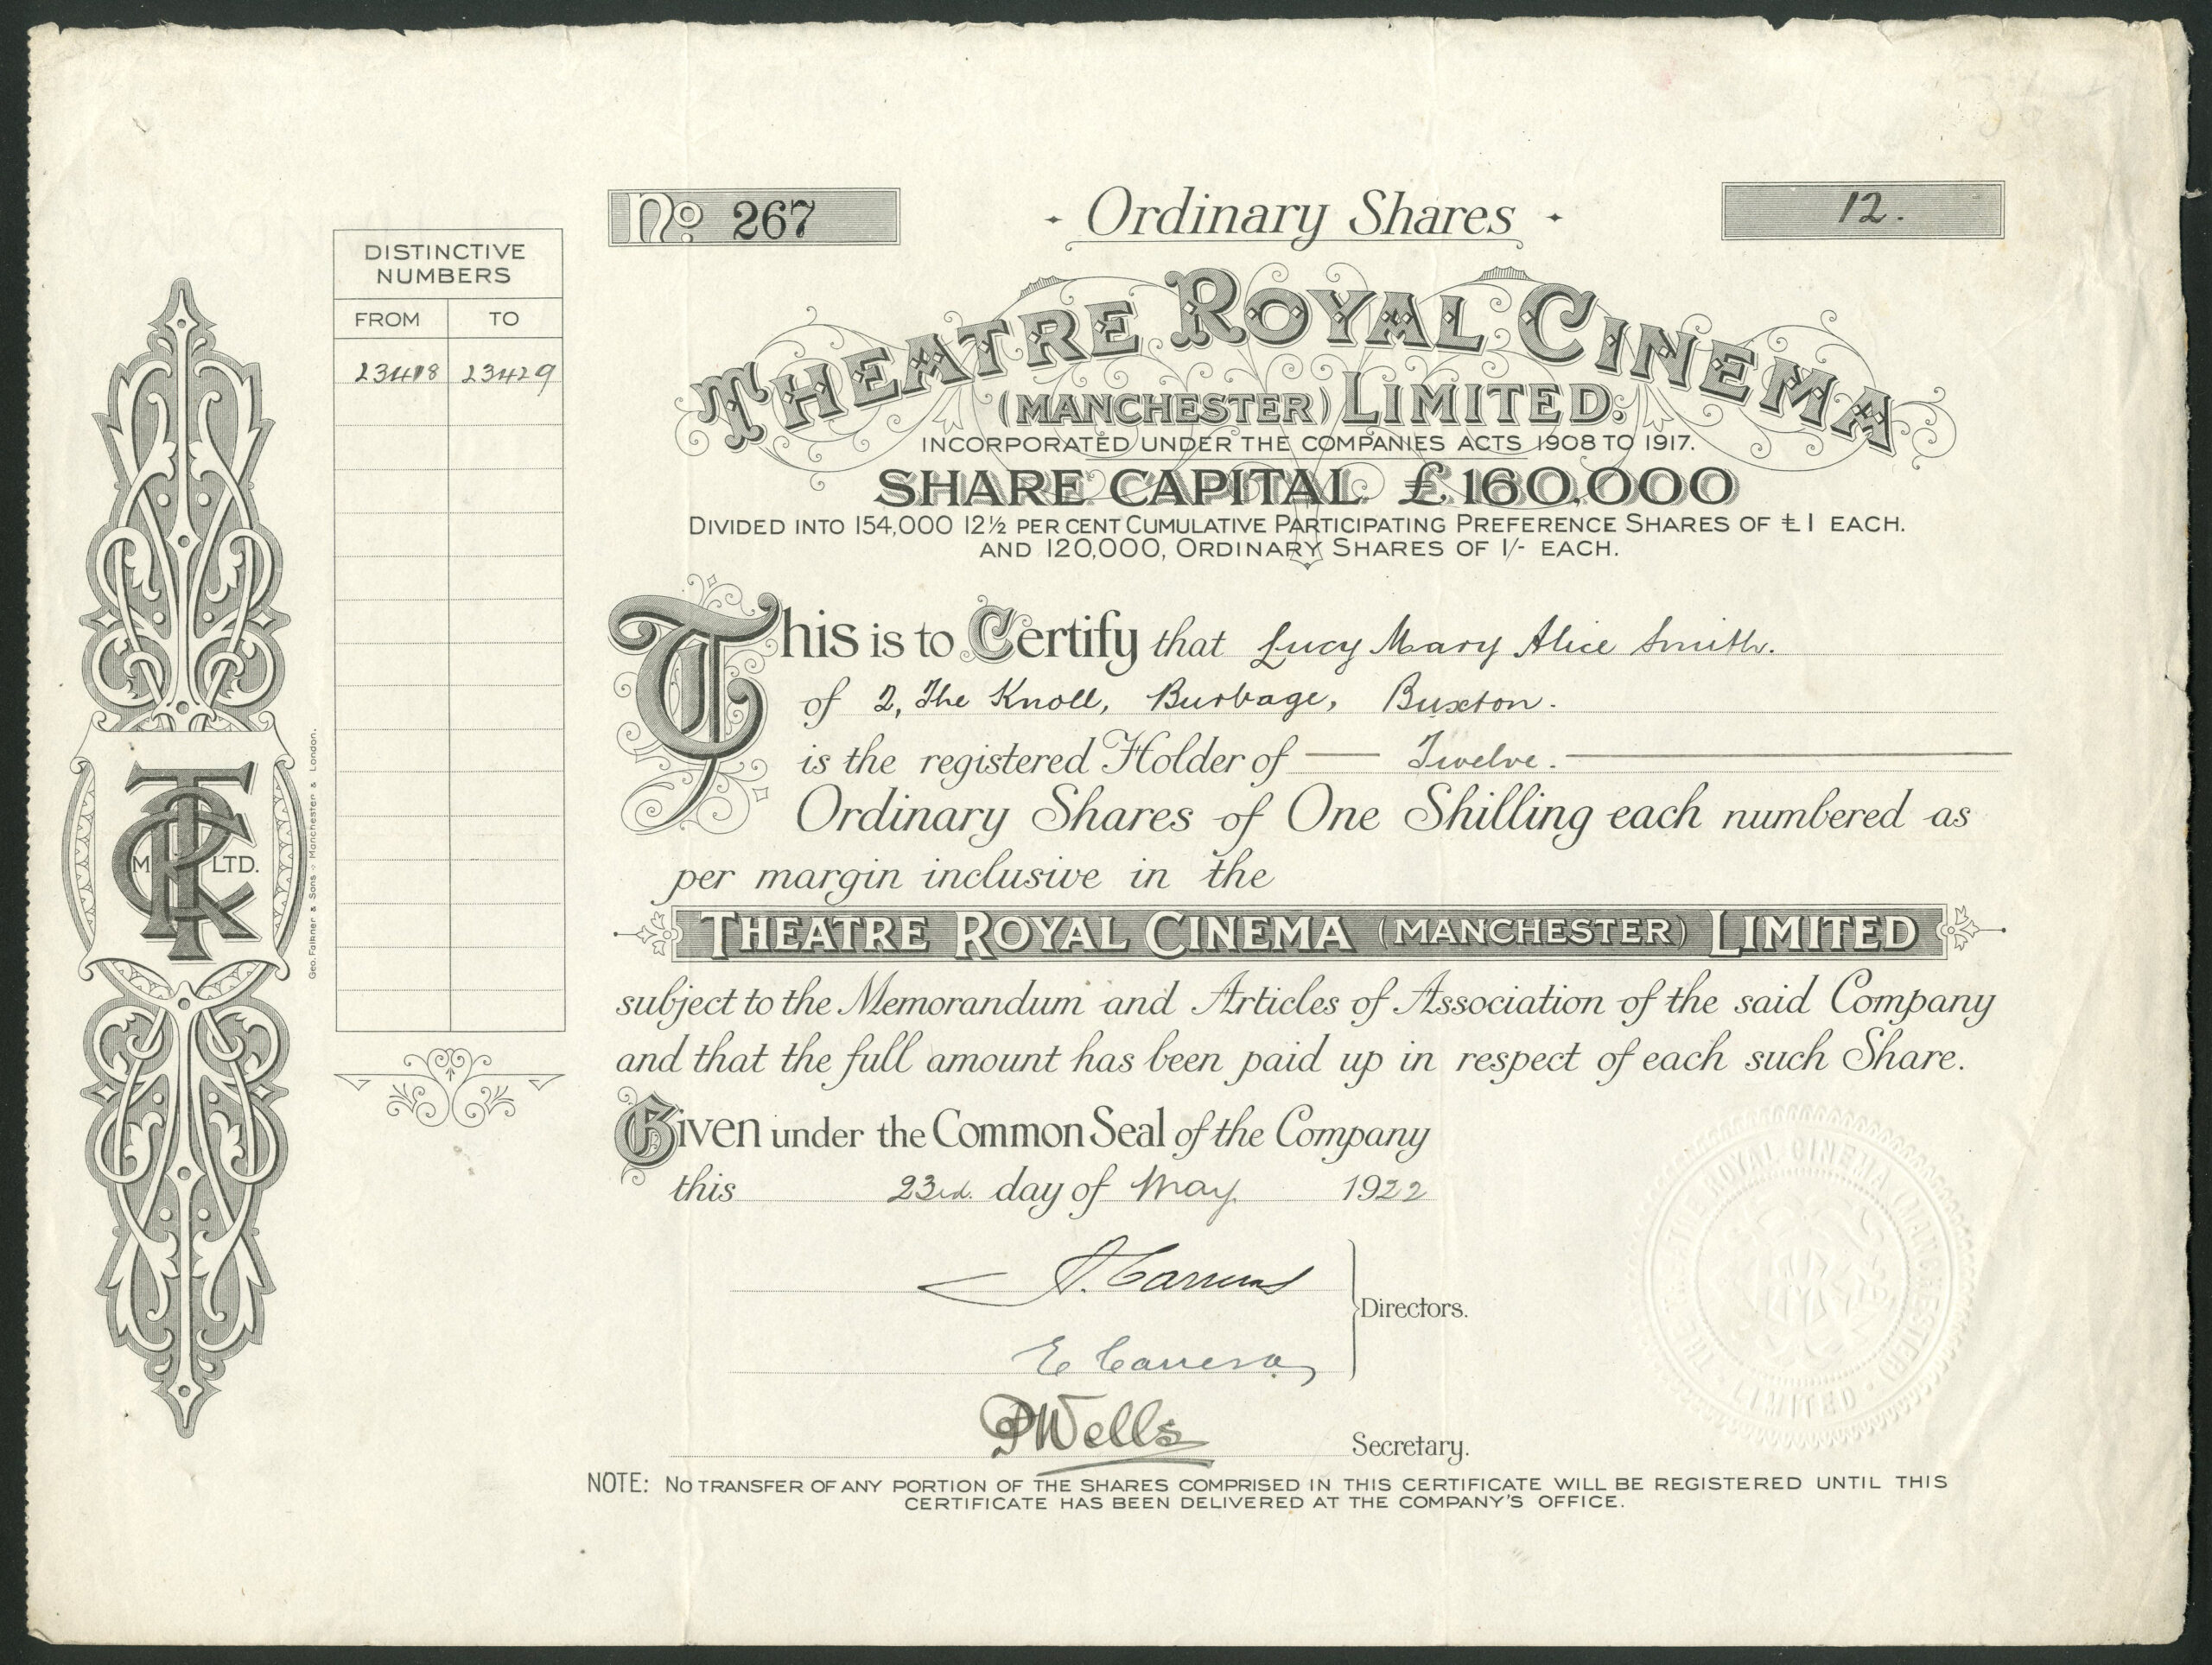 No 267
Ordinary Shares
12.
DISTINCTIVE
NUMBERS
FROM TO
23418 23429
THEATRE ROYAL CINEMA
(MANCHESTER) LIMITED.
INCORPORATED UNDER THE COMPANIES ACTS 1908 TO 1917.
SHARE CAPITAL £160,000
DIVIDED INTO 154,000 12½ PER CENT CUMULATIVE PARTICIPATING PREFERENCE SHARES OF £1 EACH.
AND 120,000, ORDINARY SHARES OF 1/- EACH.
This is to Certify that Lucy Mary Alice Smith.
of 2, The Knoll, Burbage, Buxton.
is the registered Holder of — Twelve. —
Ordinary Shares of One Shilling each numbered as
per margin inclusive in the
THEATRE ROYAL CINEMA (MANCHESTER) LIMITED
subject to the Memorandum and Articles of Association of the said Company
and that the full amount has been paid up in respect of each such Share.
Given under the Common Seal of the Company
this 23rd. day of May 1922
Directors.
E Carreras
PWells
Secretary.
NOTE: NO TRANSFER OF ANY PORTION OF THE SHARES COMPRISED IN THIS CERTIFICATE WILL BE REGISTERED UNTIL THIS
CERTIFICATE HAS BEEN DELIVERED AT THE COMPANY'S OFFICE.
TRC
M LTD.
Geo. Falkner & Sons Manchester & London.
THE THEATRE ROYAL CINEMA (MANCHESTER)
LIMITED